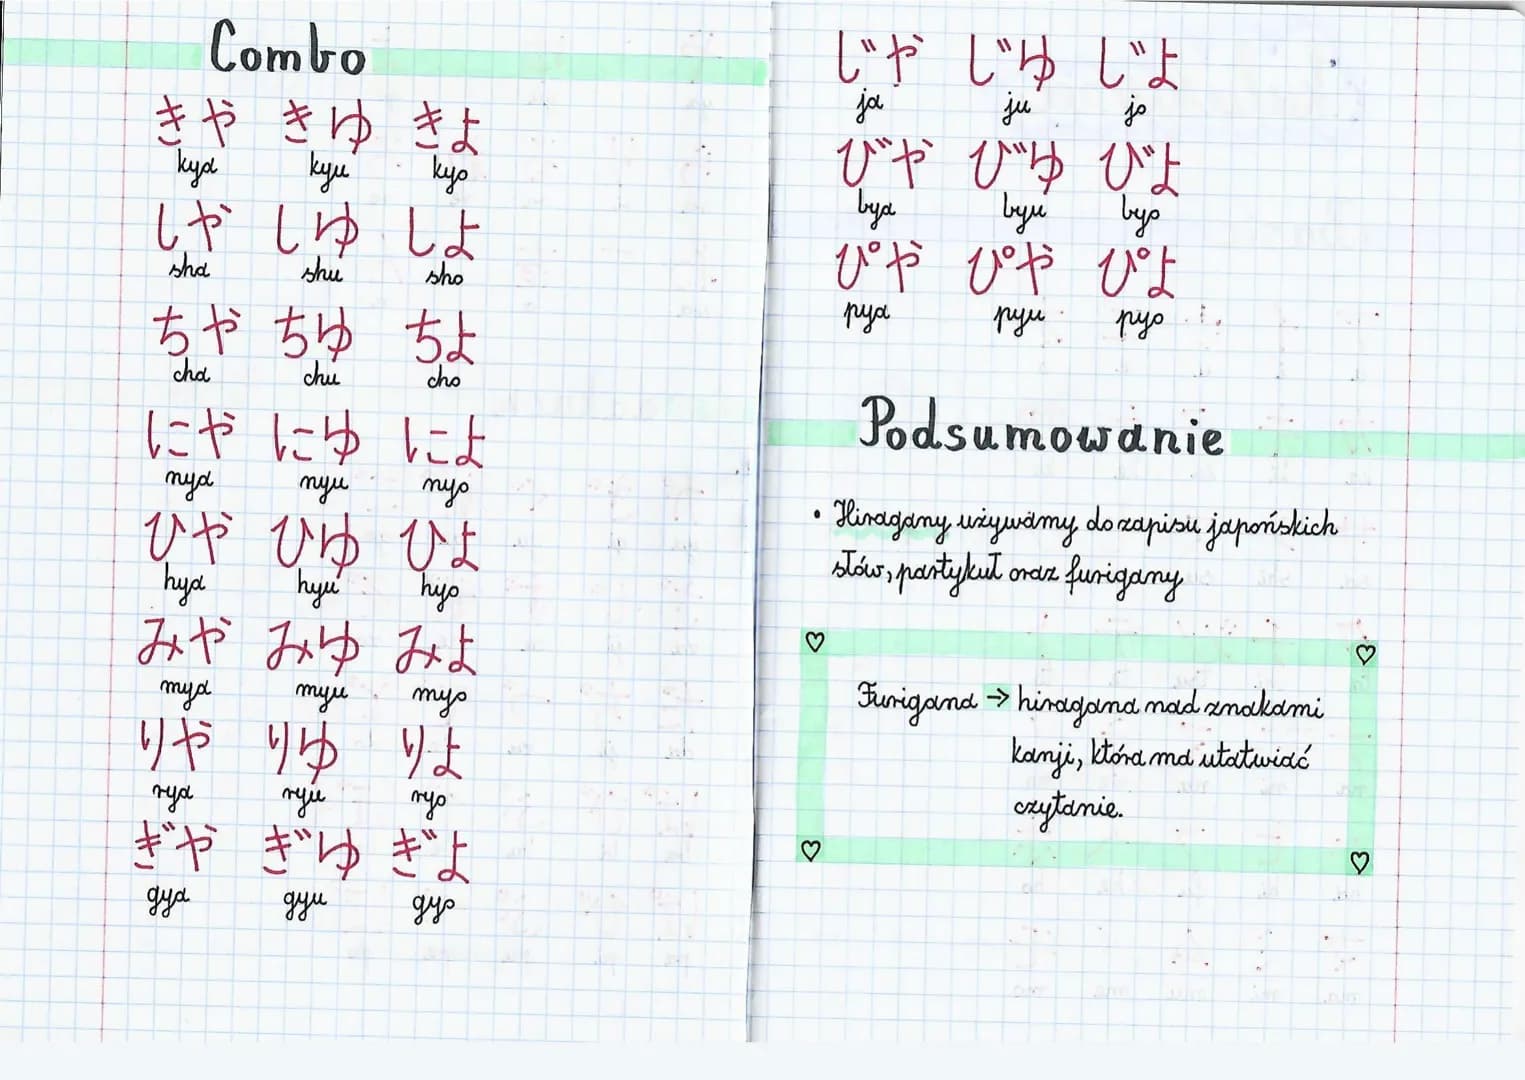 Combo
きや きゆ きよ
kya kyu kyo
しや しゆ しよ
sha shu sho
ちや ちゆ ちよ
cha chu cho
にや にゆ によ
nya nyu nyo
ひや ひゆ ひよ
hya hyu hyo
みや みゆ みよ
mya myu myo
りや りゆ りよ
rya ryu ryo
ぎや ぎゆ ぎよ
gya gyu gyo
じや じゆ じよ
ja ju jo
びや びゆ びよ
bya byu byo
ぴや ぴや ぴよ
pya pyu pyo
Podsumowanie
• Hiragany używamy do zapisu japońskich
słów, partykuł oraz furigany
Furigana → hiragana nad znakami
kanji, która ma ułatwiać
czytanie.